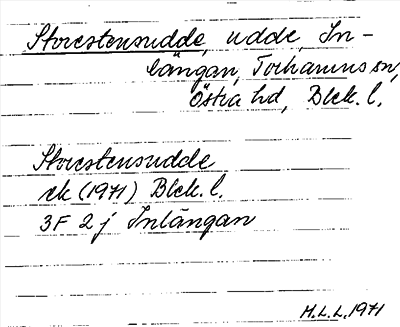 Storestensudde, udde, In-
längan, Torhamns sn,
Östra hd, Blek. l.
Storestensudde
ek (1971) Blek. l.
3F 2j Inlängan
M.L.L. 1971